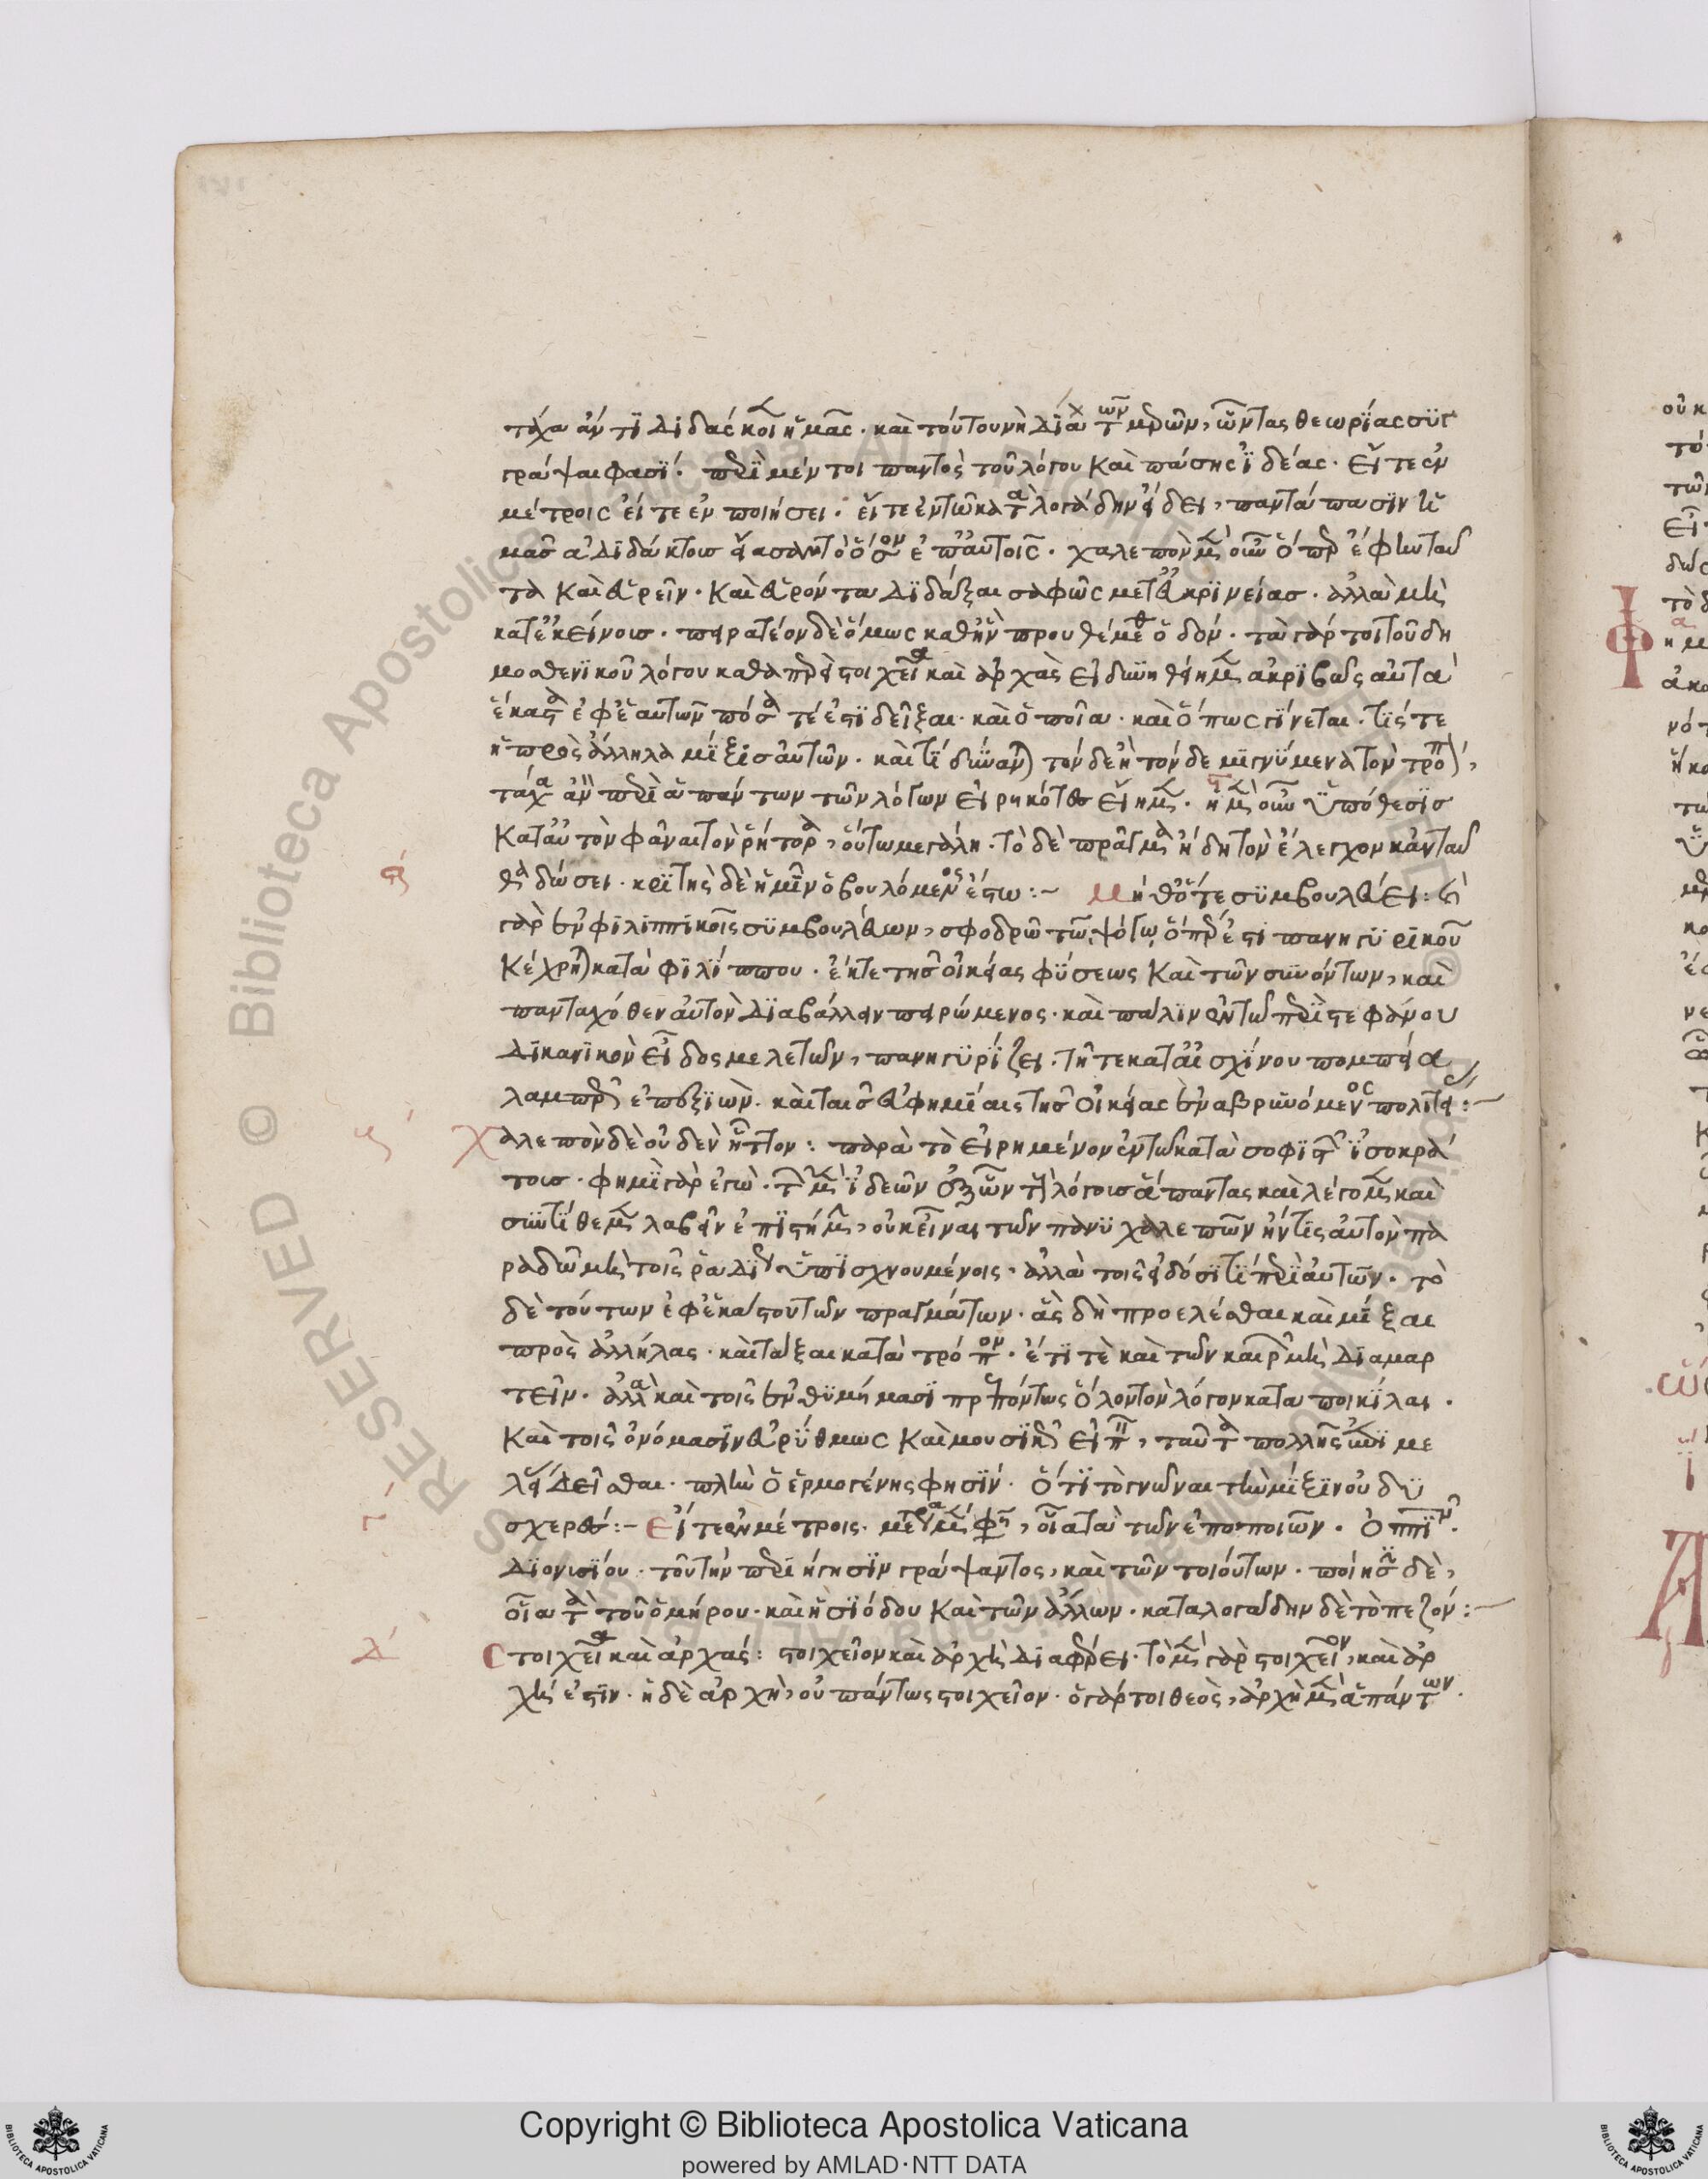 τάχα ἄν τι διδάσκοι ἡμᾶς· καὶ τούτου νὴ Δία χ τῶν μερῶν, ὥντας θεωρίας συγ
γράψαι φασί· περὶ μέντοι παντὸς τοῦ λόγου καὶ πάσης ἰδέας· εἴτε ἐν
μέτροις εἴτε ἐν ποιήσει· εἴτε ἐν τῶ καταλογάδην εἴδει, παντάπασιν ἡ
μᾶς ἀδιδάκτους εἴασαν τὸ ὅσον ἐπ' αὐτοῖς· χαλεπὸν μὲν οὖν ὅπερ ἔφην ταῦ
τα καὶ εὑρεῖν· καὶ εὑρόντα διδάξαι σαφῶς μετ' εὐκρινείας· ἀλλὰ μὴ
κατ' ἐκείνους· πειρατέον δὲ ὅμως καθ' ἣν προὐθέμεθα ὁδόν· τὰ γάρ τοι τοῦ δη
μοσθενικοῦ λόγου καθαπερεὶ στοιχεῖα καὶ ἀρχὰς εἰ δυνηθείημεν ἀκριβῶς αὐτὰ
ἕκαστα ἐφ' ἑαυτῶν πόσα τέ ἐστι δεῖξαι· καὶ ὁποῖα· καὶ ὅπως γίνεται· τίς τε
ἡ πρὸς ἄλληλα μίξις αὐτῶν· καὶ τί δύναται τόνδε ἢ τόνδε μιγνύμενα τὸν τρόπον,
τάχα ἂν περὶ ἁπάντων τῶν λόγων εἰρηκότες εἴημεν· ἡ μὲν οὖν ὑπόθεσις
κατ' αὐτὸν φάναι τὸν ῥήτορα, οὕτω μεγάλη· τὸ δὲ πρᾶγμα ἤδη τὸν ἔλεγχον κἀνταῦ
θα δώσει· κριτὴς δὲ ἡμῖν ὁ βουλόμενος ἔστω:~ μηθ' ὅτε συμβουλεύει: καὶ
γὰρ ἐν φιλιππικοῖς συμβουλεύων, σφοδρῶ τῶ ψόγω ὅπερ ἐστὶ πανηγυρικοῦ
κέχρηται κατὰ φιλίππου· ἔκ τε τῆς οἰκείας φύσεως καὶ τῶν συνόντων, καὶ
πανταχόθεν αὐτὸν διαβάλλειν πειρώμενος· καὶ πάλιν ἐν τῶ περὶ στεφάνου
δικανικὸν εἶδος μελετῶν, πανηγυρίζει· τῆ τε κατ' αἰσχίνου πομπεία
λαμπρῶς ἐπεξιὼν· καὶ ταῖς εὐφημίαις τῆς οἰκείας ἐναβρυνόμενος πολιτείας:~
Χαλεπὸν δὲ οὐδὲν ἧττον: παρὰ τὸ εἰρημένον ἐν τῶ κατὰ σοφιστῶν ἰσοκρά
τους· φημὶ γὰρ ἐγὼ· τῶν μὲν ἰδεῶν ἐξ ὧν τοὺς λόγους ἅπαντας καὶ λέγομεν καὶ
συντίθεμεν λαβεῖν ἐπιστήμην, οὐκ εἶναι τῶν πάνυ χαλεπῶν ἤν τις αὐτὸν πα
ραδῶ μὴ τοῖς ῥαδίως ὑπισχνουμένοις· ἀλλὰ τοῖς εἰδόσι τί περὶ αὐτῶν· τὸ
δὲ τούτων ἐφ' ἑκάστου τῶν πραγμάτων· ἃς δὴ προελέσθαι καὶ μίξαι
πρὸς ἀλλήλας· καὶ τάξαι κατὰ τρόπον· ἔτι τὲ καὶ τῶν καιρῶν μὴ διαμαρ
τεῖν· ἀλλὰ καὶ τοῖς ἐνθυμήμασι πρεπόντως ὅλον τὸν λόγον καταποικίλαι·
καὶ τοῖς ὀνόμασιν εὐρύθμως καὶ μουσικῶς εἰπεῖν, ταῦτα πολλῆς ἐπιμε
λείας δεῖσθαι· πλὴν ὁ ἑρμογένης φησίν· ὅτι τὸ γνῶναι τὴν μίξιν οὐ δυ
σχερὲς:~ Εἴτε ἐν μέτροις· μέτρα μέν φησιν, οἷα τὰ τῶν ἐποποιῶν· Ὀππιανοῦ.
Διονυσίου· τοῦ τὴν περιήγησιν γράψαντος, καὶ τῶν τοιούτων· ποίησιν δὲ,
οἷα τὰ τοῦ ὁμήρου· καὶ ἡσιόδου καὶ τῶν ἄλλων· καταλογάδην δὲ τὸ πεζόν:~
Στοιχεῖα καὶ ἀρχάς: στοιχεῖον καὶ ἀρχὴ διαφέρει· τὸ μὲν γὰρ στοιχεῖον, καὶ ἀρ
χή ἐστιν· ἡ δὲ ἀρχὴ, οὐ πάντως στοιχεῖον· ὁ γάρ τοι θεὸς, ἀρχὴ μὲν ἁπάντων.
Copyright © Biblioteca Apostolica Vaticana
powered by AMLAD·NTT DATA